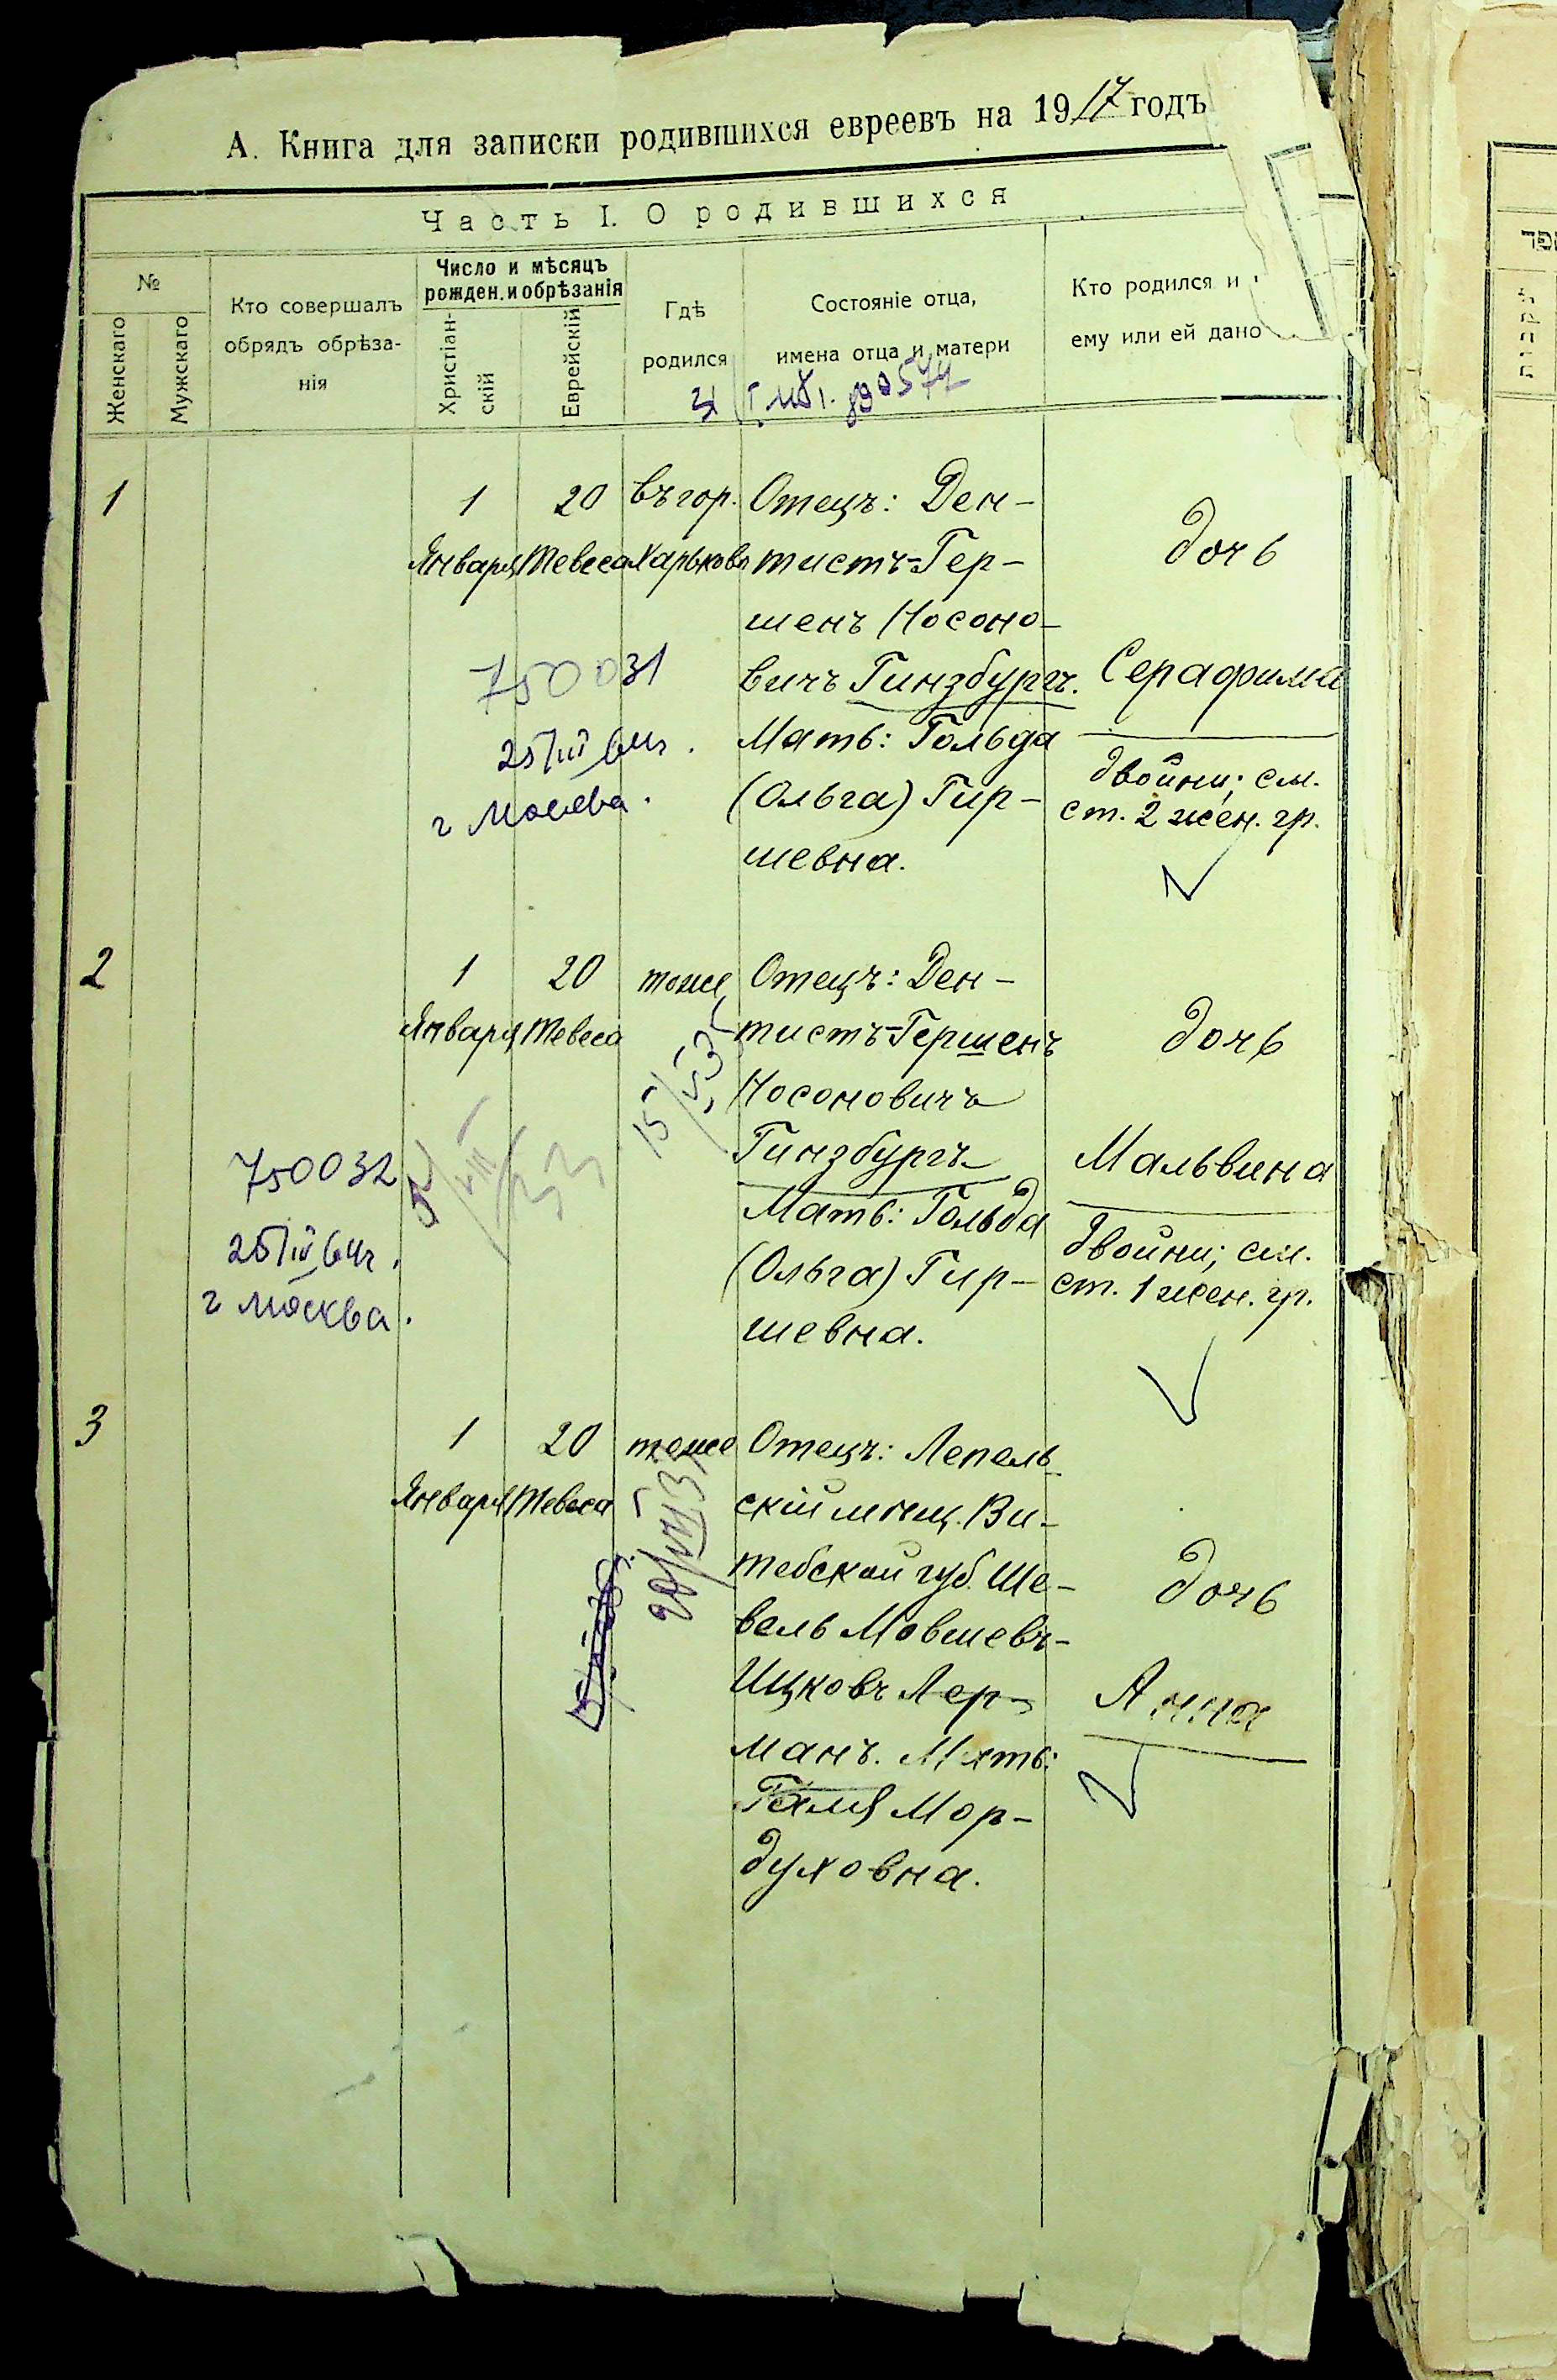 А. Книга для записки родившихся евреевъ на 1917 годъ
Часть I. О родившихся
№
Женскаго
Мужскаго
Кто совершалъ
обрядъ обрѣза-
нія
Число и мѣсяцъ
рожден. и обрѣзанія
Христіан-
скій
Еврейскій
Гдѣ
родился
Состояніе отца,
имена отца и матери
Кто родился и
ему или ей дано
1
1
Января
20
Тевеса
въ гор.
Харьковѣ
Отецъ: Ден-
тистъ-Гер-
шенъ Носоно-
вичъ Гинзбургъ.
Мать: Гольда
(Ольга) Гир-
шевна.
дочь
Серафима
двойни; см.
ст. 2 жен. гр.
750031
г Москва.
2
1
Января
20
Тевеса
тоже
Отецъ: Ден-
тистъ-Гершенъ
Носоновичъ
Гинзбургъ
Мать: Гольда
(Ольга) Гир-
шевна.
дочь
Мальвина
двойни; см.
ст. 1 жен. гр.
750032
г Москва.
3
1
Января
20
Тевеса
тоже
Отецъ: Лепель-
скій мѣщ. Ви-
тебской губ. Ше-
вель Мовшевъ-
Ицковъ Лер-
манъ. Мать:
Мор-
духовна.
дочь
Анна